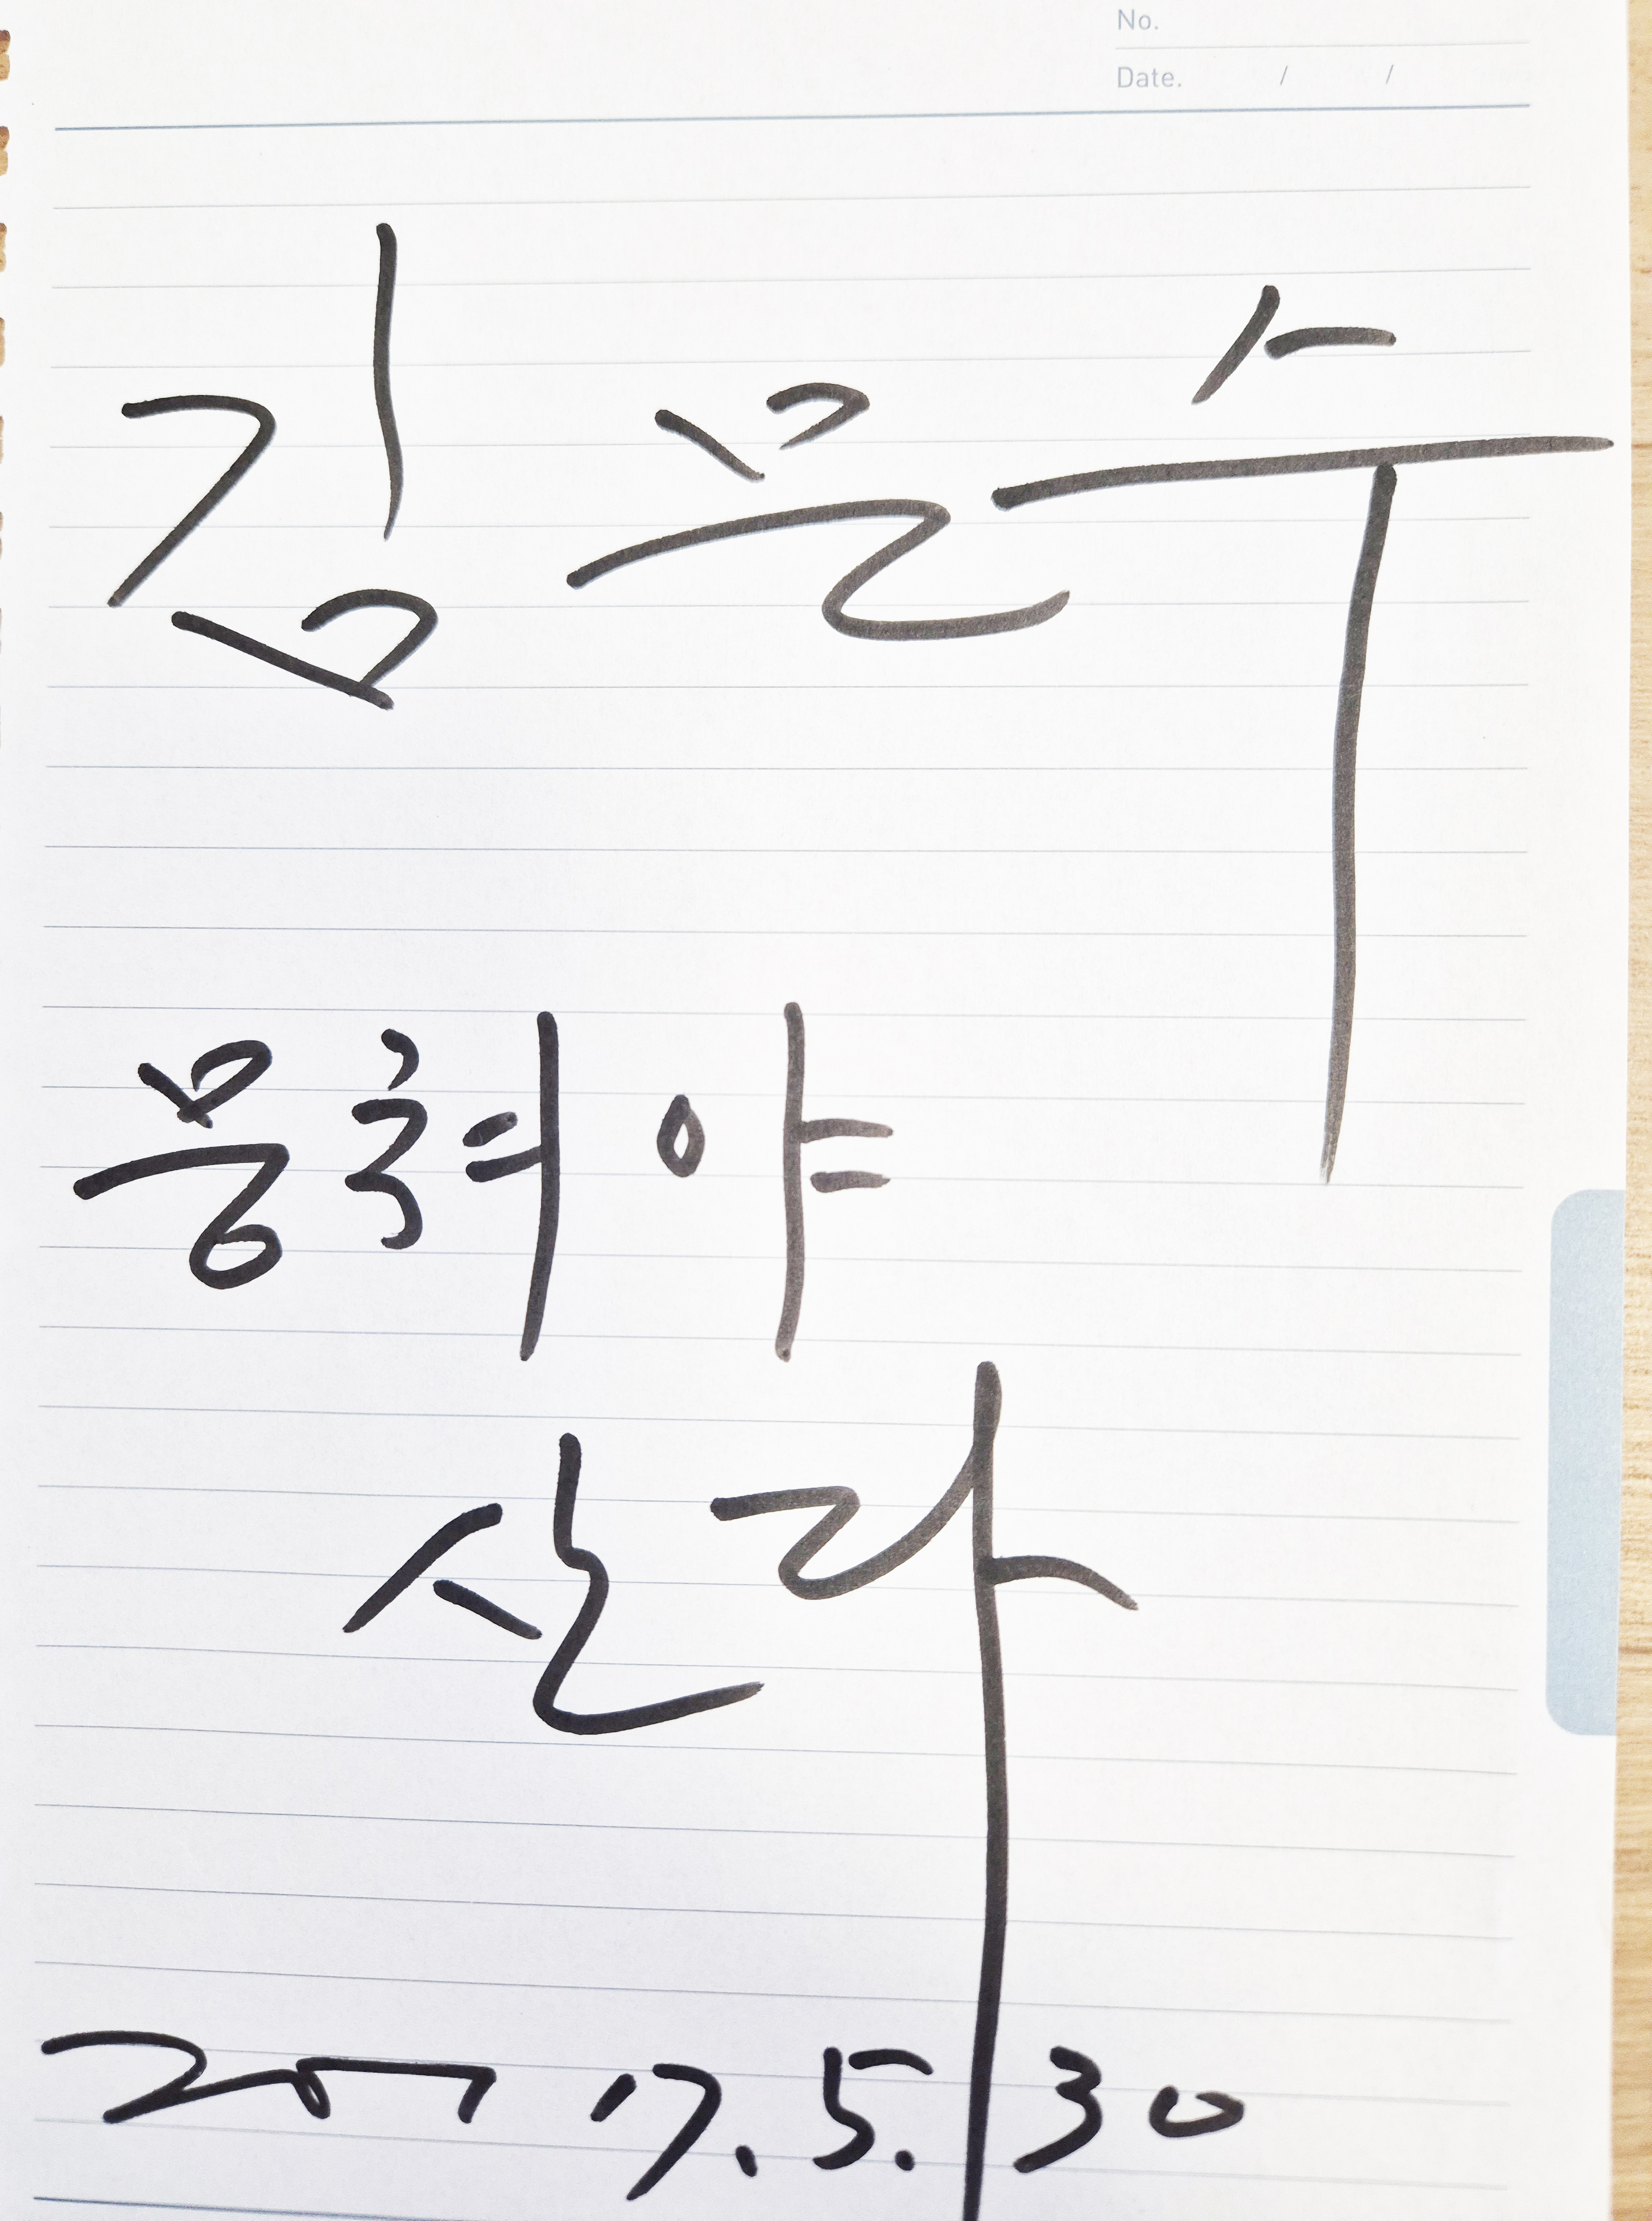 No.
Date. / /
김은수
응켜야
산다
2017.5.30